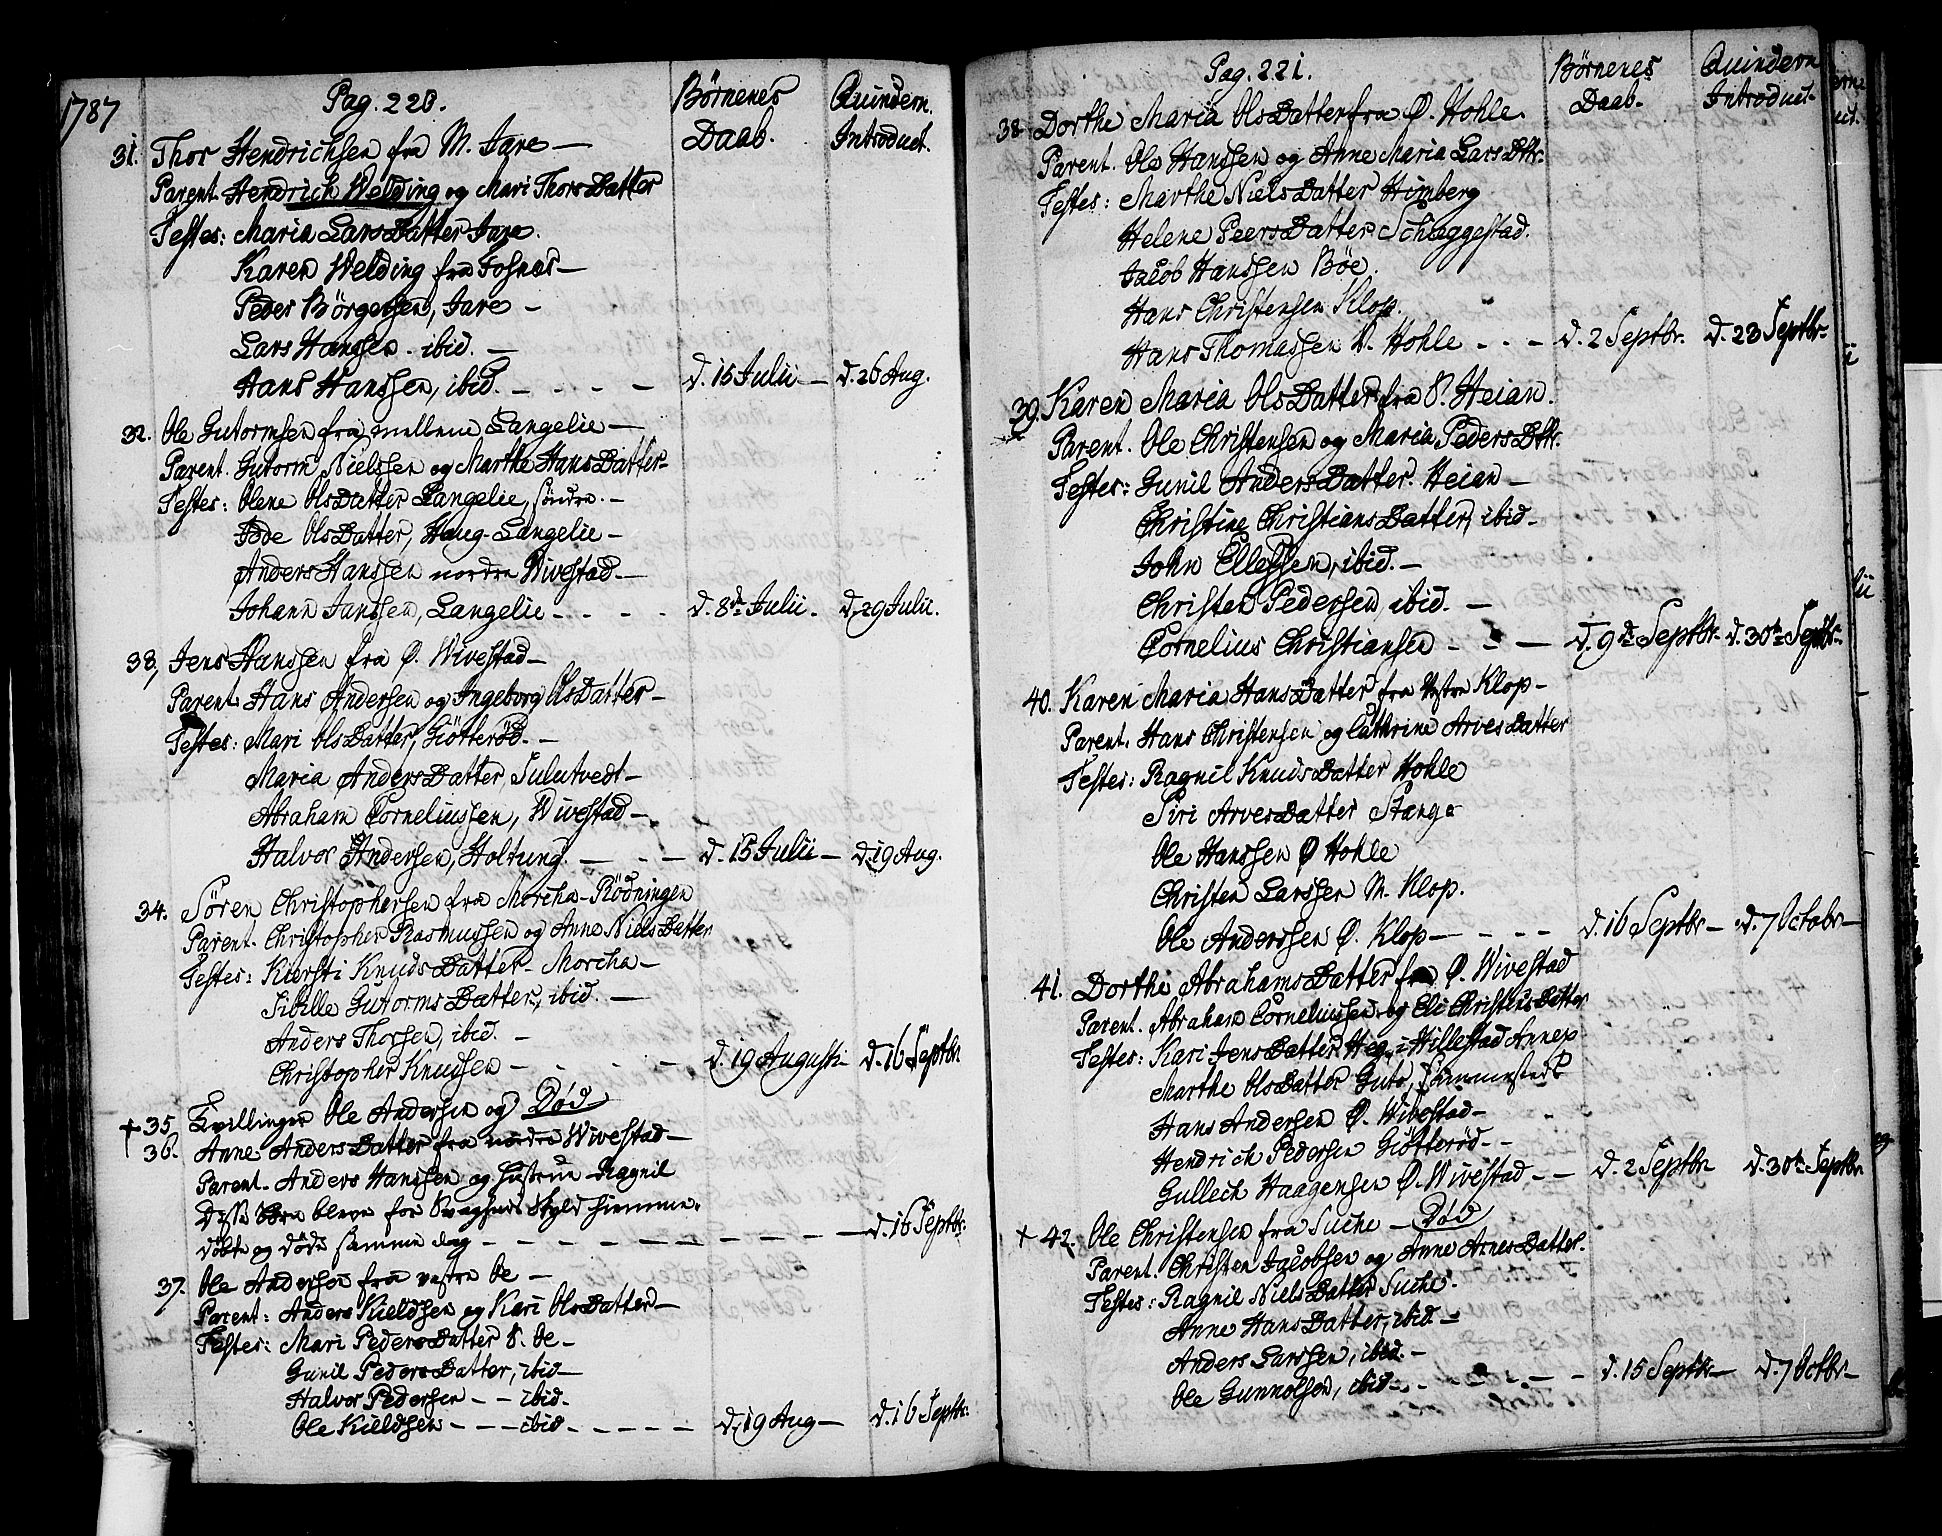 1787
Pag. 220.
Börnenes Daab.
Quindern. Introduct.
31. Thor Hendrichsen fra M. Jare —
Parent. Hendrich Welding og Mari Thors Datter
Testes: Maria Lars Datter Jare.
Karen Welding fra Fosnæs —
Peder Börgersen, Jare —
Lars Hanssen. ibid. —
Hans Hanssen, ibid. - - - - d. 15 Julii — d. 26 Aug.
32. Ole Gutormsen fra mellem Langelie —
Parent. Gutorm Nielssen og Marthe Hans Datter-
Testes: Olene Ols Datter Langelie, söndre. -
Tode Ols Datter, Haug-Langelie —
Anders Hanssen nordre Wivestad —
Johann Janssen, Langelie - - - - d. 8de Julii - d. 29 Julii.
33, Jens Hanssen fra Ø. Wivestad —
Parent. Hans Andersen og Ingeborg Ols Datter —
Testes: Mari Ols Datter, Giötteröd. —
Maria Anders Datter, Sulutvedt —
Abraham Corneliussen, Wivestad —
Halvor Andersen, Holtung. — - - — d. 15 Julii — d. 19 Aug.
34. Sören Christophersen fra Morcha-Rödningen
Parent. Christopher Rasmussen og Anne Niels Datter
Testes: Kiersti Knuds Datter - Morcha —
Sibille Gutorms Datter, ibid. —
Anders Thorsen, ibid. —
Christopher Knudsen - - - - d. 19 Augusti d. 16 Septbr
† 35. Tvillinger Ole Andersen og Död
36. Anne Anders Datter fra nordre Wivestad —
Parent. Anders Hanssen og Hustrue Ragnil
Disse Börn bleve for Svagheds Skyld hiemme-
döbte og döde samme dag - - - - - - d. 16 Septbr:
37. Ole Andersen fra vestre Oe —
Parent: Anders Kieldsen og Kari Ols Datter —
Testes: Mari Peders Datter V. Oe —
Gunil Peders Datter, ibid —
Halvor Pedersen - - ibid-
Ole Kieldsen - - - ibid - - - - - d. 19 Aug — d. 16 Septbr:
Pag. 221.
Börnenes Daab-
Quindern Introduct-
38 Dorthe Maria Ols Datter fra Ø. Hohle.
Parent. Ole Hanssen og Anne Maria Lars Dttr.
Testes: Marthe Niels Datter Himberg
Helene Peers Datter Schaggestad.
Jacob Hanssen Böe.
Hans Christensen Klop.
Hans Thomassen V. Hohle - - - d. 2 Septbr. d. 23 Septbr-
39. Karen Maria Ols Datter fra V. Heian.
Parent. Ole Christensen og Maria Peders Dttr.
Testes: Gunil Anders Datter. Heian —
Christine Christians Datter, ibid-
John Ellefsen, ibid. —
Christen Pedersen, ibid. —
Cornelius Christiansen - - — d. 9de Septbr- d. 30te Septbr-
40. Karen Maria Hans Datter fra Vestre Klop —
Parent. Hans Christensen og Cathrine Arves Datter
Testes: Ragnil Knuds Datter Hohle
Siri Arves Datter Stange
Ole Hanssen Ø Hohle
Christen Larssen M. Klop.
Ole Anderssen Ø. Klop — - - - d. 16 Septbr — d. 7 Octobr —
41. Dorthe Abrahams Datter fra Ø. Wivestad
Parent. Abraham Corneliussen og Eli Christens Datter
Testes: Kari Jens Datter Heg. i Hillestad Annex
Marthe Ols Datter
Hans Andersen Ø. Wivestad —
Hendrich Pedersen Giötteröd - -
Gullech Haagensen Ø. Wivestad - - d. 2 Septbr d. 30te Septbr
† 42. Ole Christensen fra Suche — Död
Parent. Christen Jacobsen og Anne Arnes Datter.
Testes: Ragnil Niels Datter Suche.
Anne Hans Datter, ibid —
Anders Larssen, ibid. —
Ole Gunnolsen, ibid - - - - - - d. 15 Septbr — d. 7 Octbr —